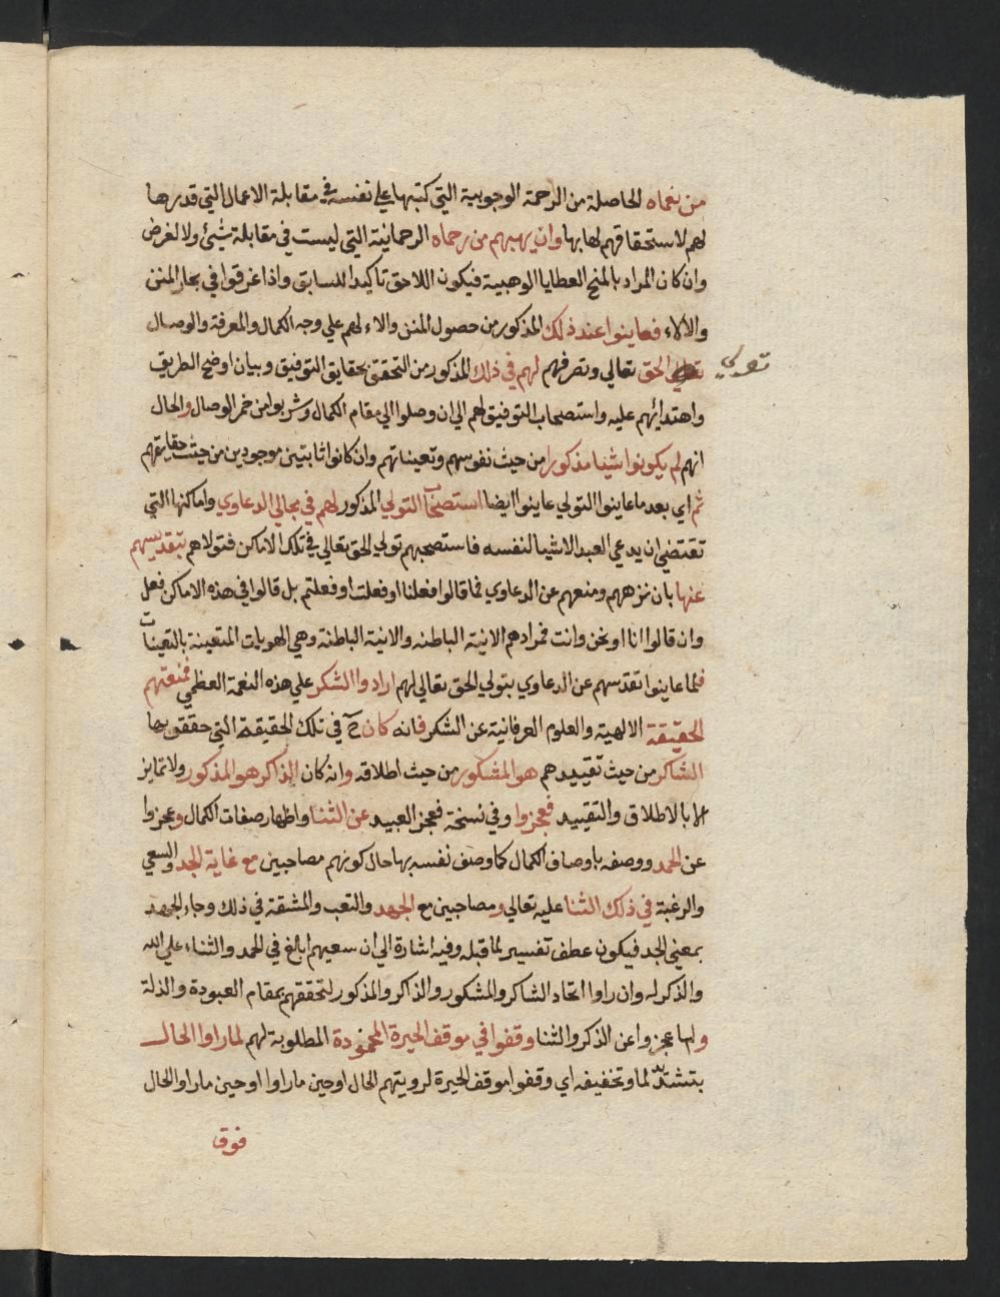 من نعماه الحاصلة من الرحمة الوجوبية التي كتبها علي نفسه في مقابلة الاعمال التي قدرها
لهم لاستحقاقهم لها بها وان يهبهم من رحماه الرحمانية التي ليست في مقابلة شيئ ولا لغرض
وان كان المراد بالمنح العطايا الوهبية فيكون اللاحق تاكيدا للسابق واذا غرقوا في بحار المنن
والالاء فعاينوا عند ذلك المذكور من حصول المنن والاء لهم علي وجه الكمال والمعرفة والوصال
تولي الحق تعالي وتصرفهم لهم في ذلك المذكور من التحقق بحقايق التوفيق وبيان اوضح الطريق
تولي
واهتدائهم عليه واستصحاب التوفيق لهم الي ان وصلوا الي مقام الكمال وشربوا من خمر الوصال والحال
انهم لم يكونوا شيا مذكورا من حيث نفوسهم وتعيناتهم وان كانوا ثابتين موجودين من حيث حقايقهم
ثم اي بعد ما عاينوا التولي عاينوا ايضا استصحاب التولي المذكور لهم في مجالي الدعاوي واماكنها التي
تقتضي ان يدعي العبد الاشيا لنفسه فاستصحبهم تولي الحق تعالي في تلك الاماكن فتولاهم بتقديسهم
عنها بان نزههم ومنعهم عن الدعاوي فما قالوا فعلنا او فعلت او فعلتم بل قالوا في هذه الاماكن فعل
وان قالوا انا او نحن وانت فمرادهم الانية الباطنه والانية الباطنة وهي الهويات المتعينة بالتعينات
فلما عاينوا تقدسهم عن الدعاوي بتولي الحق تعالي لهم ارادوا الشكر علي هذه النعمة العظمي فمنعتهم
الحقيقة الالهية والعلوم العرفانية عن الشكر فانه كان ح في تلك الحقيقة التي حققوا بها
الشاكر من حيث تقييدهم هو المشكور من حيث اطلاقه وانه كان الذاكر هو المذكور ولا تمايز
الا بالاطلاق والتقييد فعجزوا وفي نسخة فعجز العبيد عن الثنا واظهار صفات الكمال وعجزوا
عن الحمد ووصفه باوصاف الكمال كما وصف نفسه بها حال كونهم مصاحبين مع غاية الجد والسعي
والرغبة في ذلك الثنا عليه تعالي ومصاحبين مع الجهد والتعب والمشقة في ذلك وجاء الجهد
بمعني الجد فيكون عطف تفسير لما قبله وفيه اشارة الي ان سعيهم ابالغ في الحمد والثناء علي الله
والذكر له وان راوا اتحاد الشاكر والمشكور والذاكر والمذكور لتحققهم بمقام العبودة والذلة
ولما عجزوا عن الذكر والثنا وقفوا في موقف الحيرة المحمودة المطلوبة لهم لما راوا الحال
بتشديد لما وتخفيفه اي وقفوا موقف الحيرة لرويتهم الحال او حين ما راوا او حين ما راوا الحال
فوق